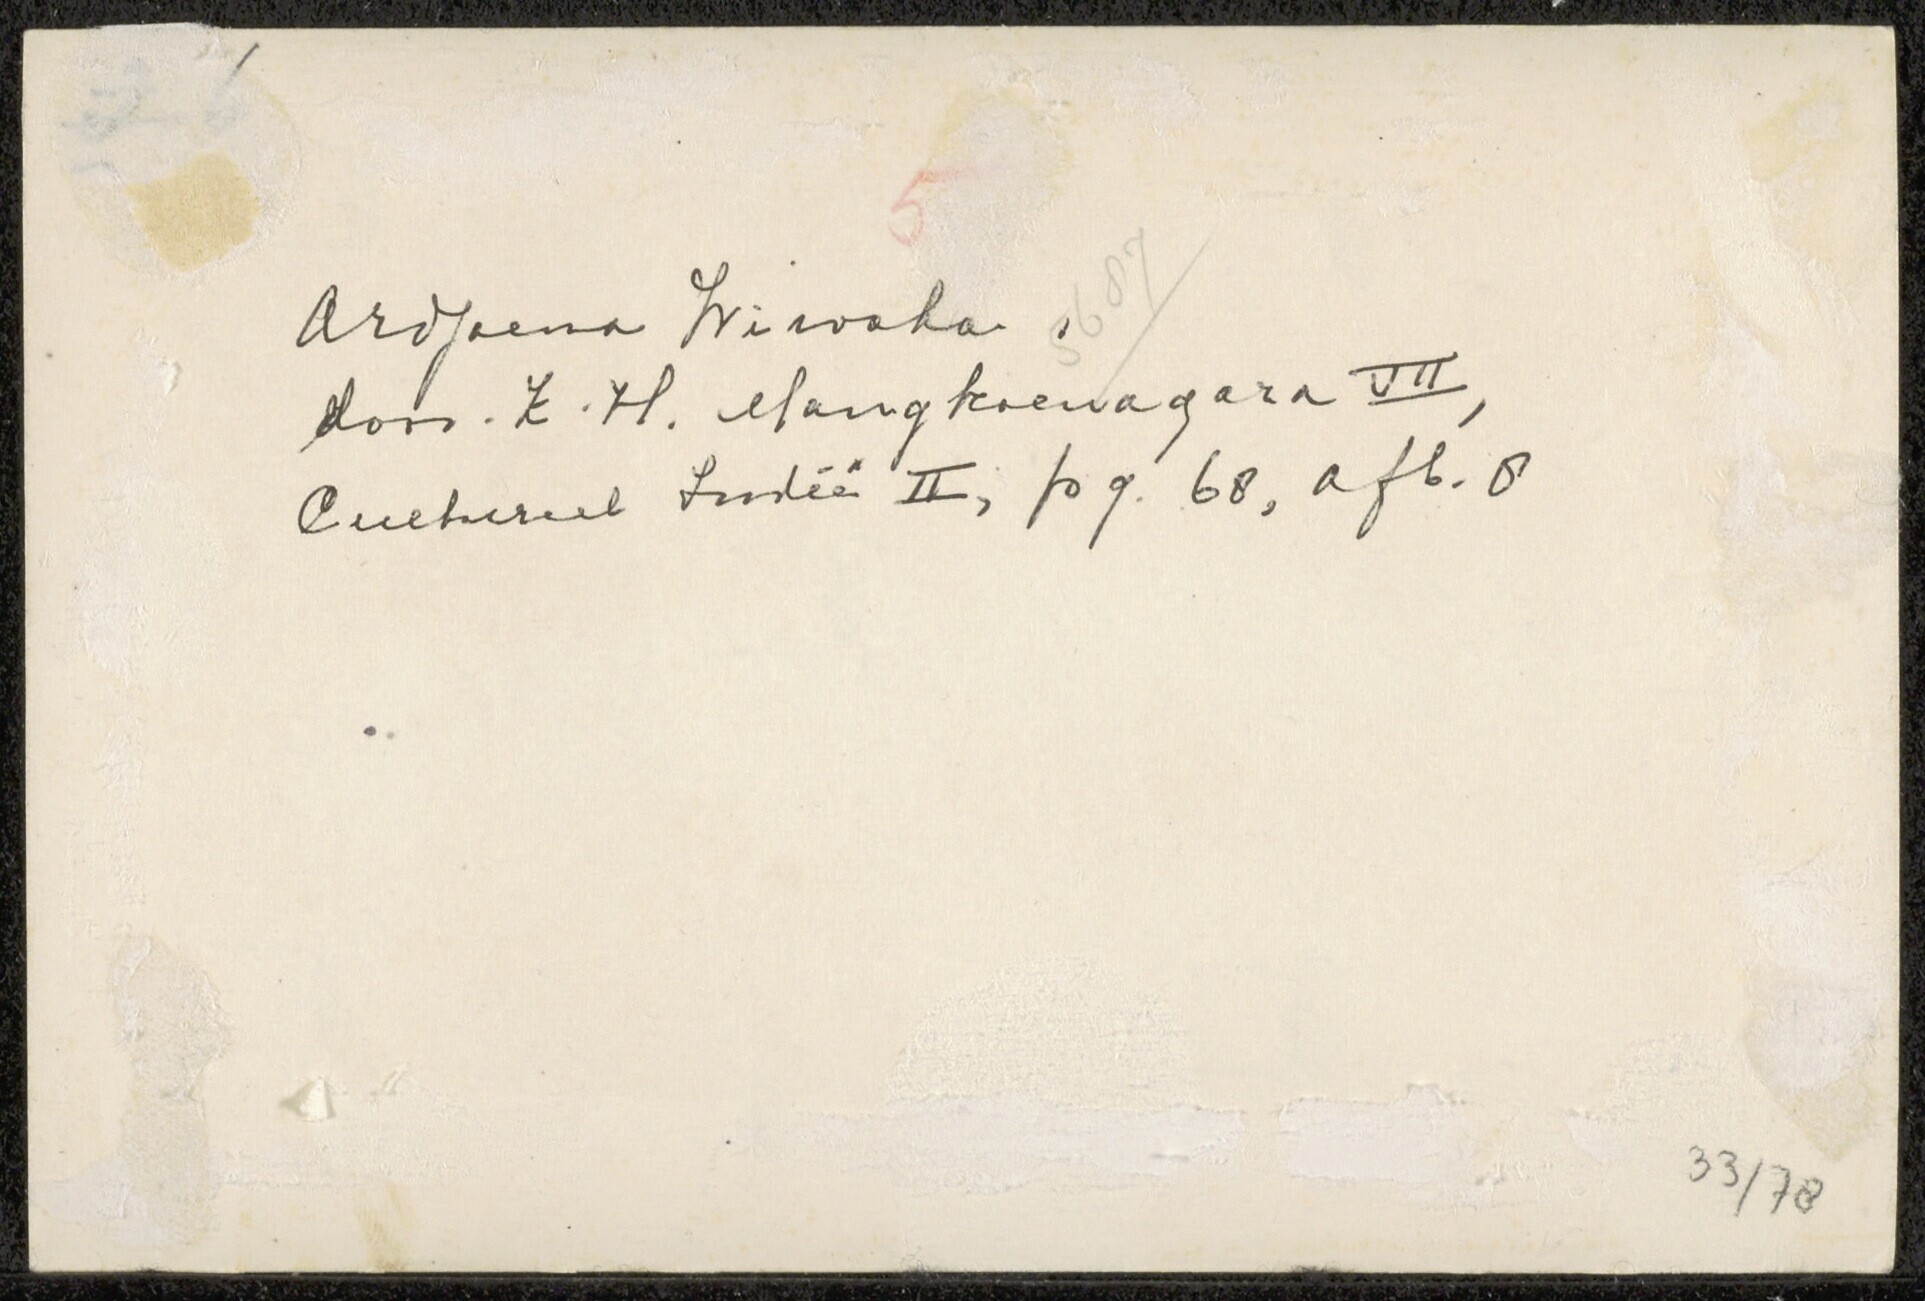 5
5687
Ardjoena Wiwaha.
door. Z.H. Mangkoenagara VII,
Cultureel Indië II, pg. 68, afb. 8
33/78